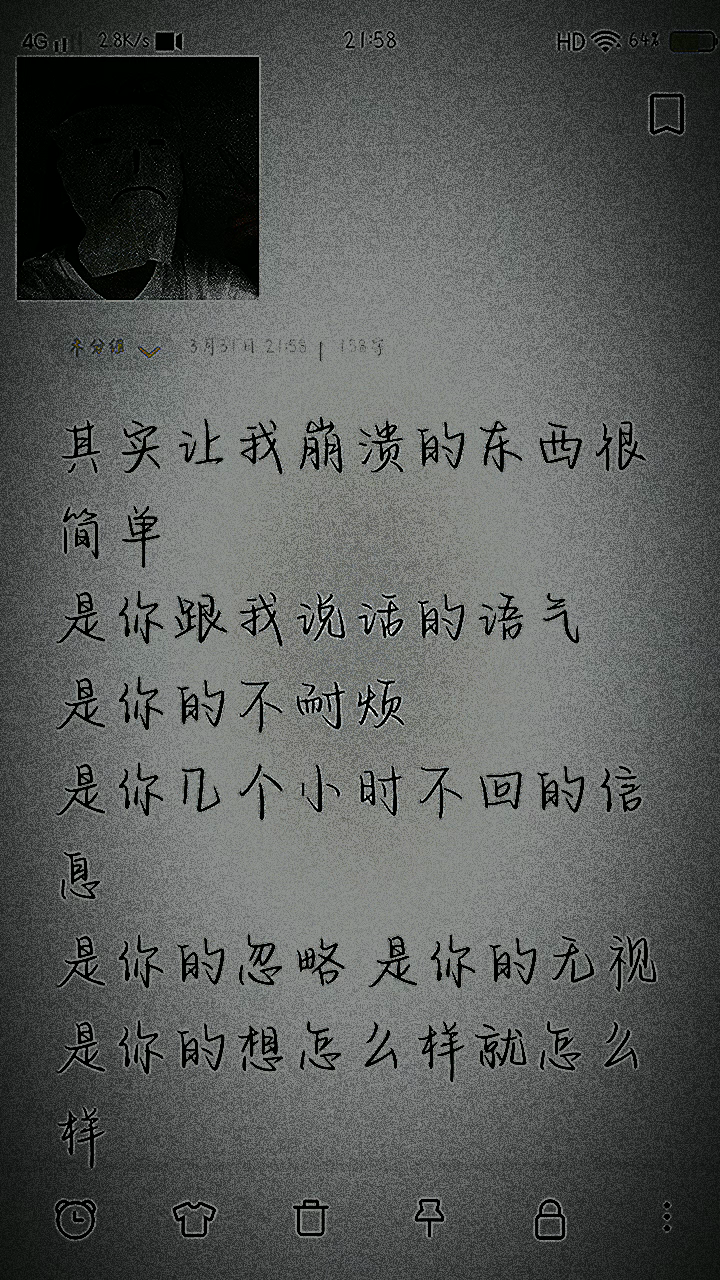 4G 2.8K/s 21:58 HD 64%
未分组 3月31日 21:58 | 158字
其实让我崩溃的东西很
简单
是你跟我说话的语气
是你的不耐烦
是你几个小时不回的信
息
是你的忽略 是你的无视
是你的想怎么样就怎么
样